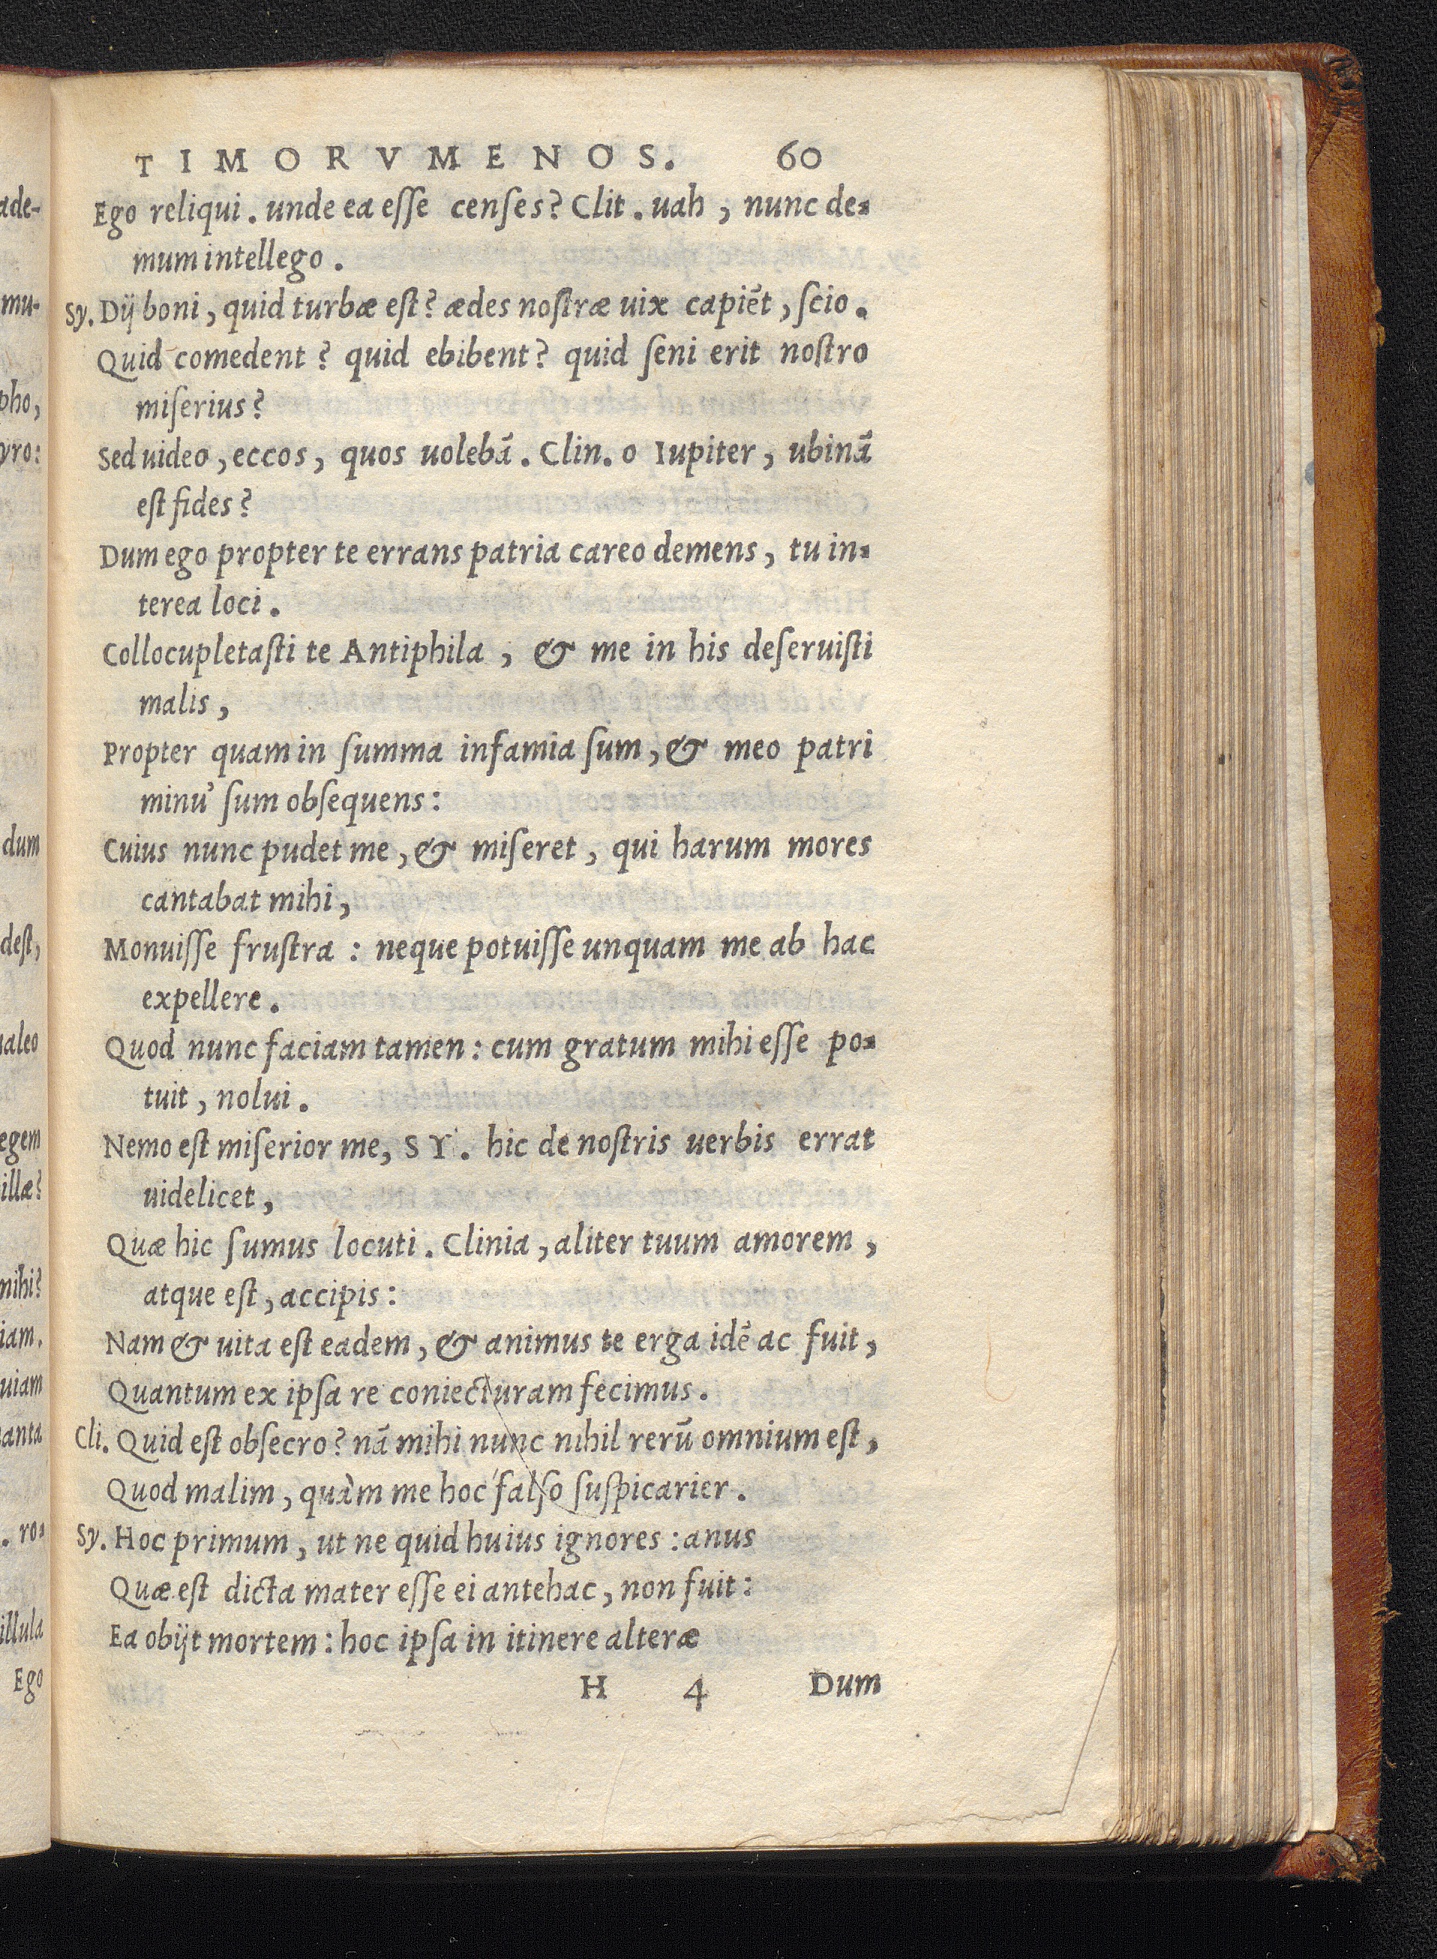 TIMORVMENOS. 60
Ego reliqui. unde ea eſſe cenſes? Clit. uah, nunc de-
mum intellego.
Sy. Dij boni, quid turbæ eſt? ædes noſtræ uix capiēt, ſcio.
Quid comedent? quid ebibent? quid ſeni erit noſtro
miſerius?
Sed uideo, eccos, quos uolebā. Clin. o Iupiter, ubinā
eſt fides?
Dum ego propter te errans patria careo demens, tu in-
terea loci.
Collocupletaſti te Antiphila, & me in his deſeruiſti
malis,
Propter quam in ſumma infamia ſum, & meo patri
minu' ſum obſequens:
Cuius nunc pudet me, & miſeret, qui harum mores
cantabat mihi,
Monuiſſe fruſtra: neque potuiſſe unquam me ab hac
expellere.
Quod nunc faciam tamen: cum gratum mihi eſſe po-
tuit, nolui.
Nemo eſt miſerior me, SY. hic de noſtris uerbis errat
uidelicet,
Quæ hic ſumus locuti. Clinia, aliter tuum amorem,
atque eſt, accipis:
Nam & uita eſt eadem, & animus te erga idē ac fuit,
Quantum ex ipſa re coniecturam fecimus.
Cli. Quid eſt obſecro? nā mihi nunc nihil rerū omnium eſt,
Quod malim, quàm me hoc falſo ſuſpicarier.
Sy. Hoc primum, ut ne quid huius ignores: anus
Quæ eſt dicta mater eſſe ei antehac, non fuit:
Ea obijt mortem: hoc ipſa in itinere alteræ
H 4 Dum
ade-
mu-
pho,
yro:
dum
deſt,
ualeo
egem
illæ?
mihi?
iam.
uiam
anta
. ro-
illula
Ego